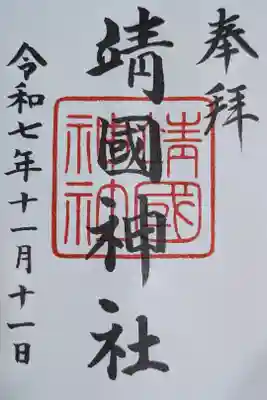 奉拝
靖國神社
靖國神社
令和七年十一月十一日